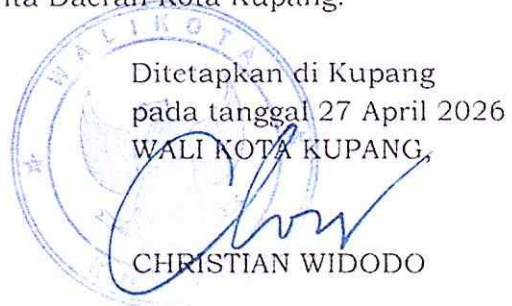 Daerah Kota Kupang.
WALIKOTA
Ditetapkan di Kupang
pada tanggal 27 April 2026
WALI KOTA KUPANG,
CHRISTIAN WIDODO